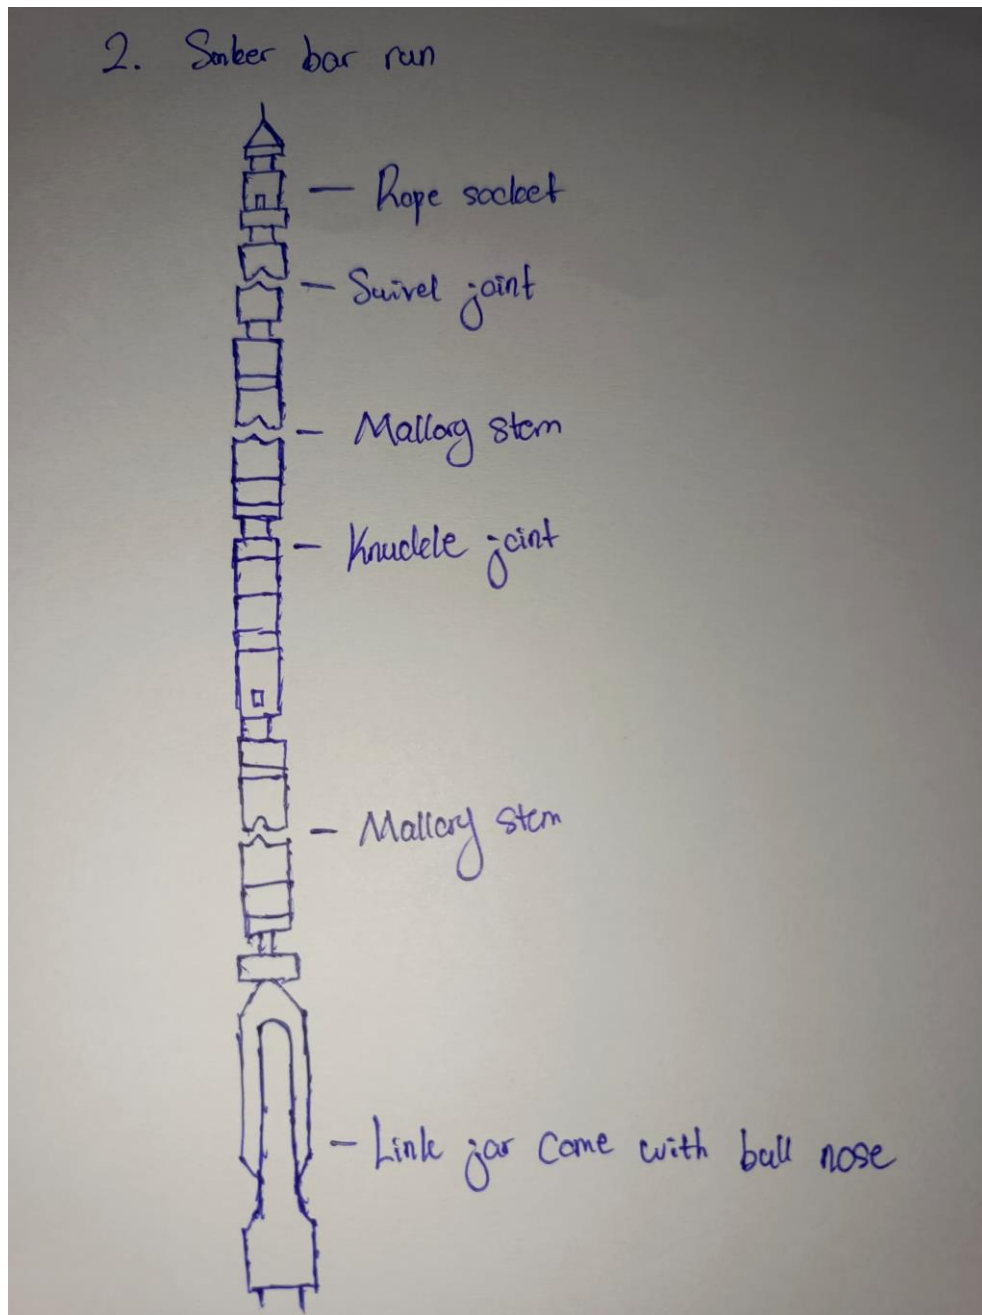 2. Sinker bar run
Rope socket
Swivel joint
Mallory stem
Knuckle joint
Mallory stem
Link jar come with ball nose